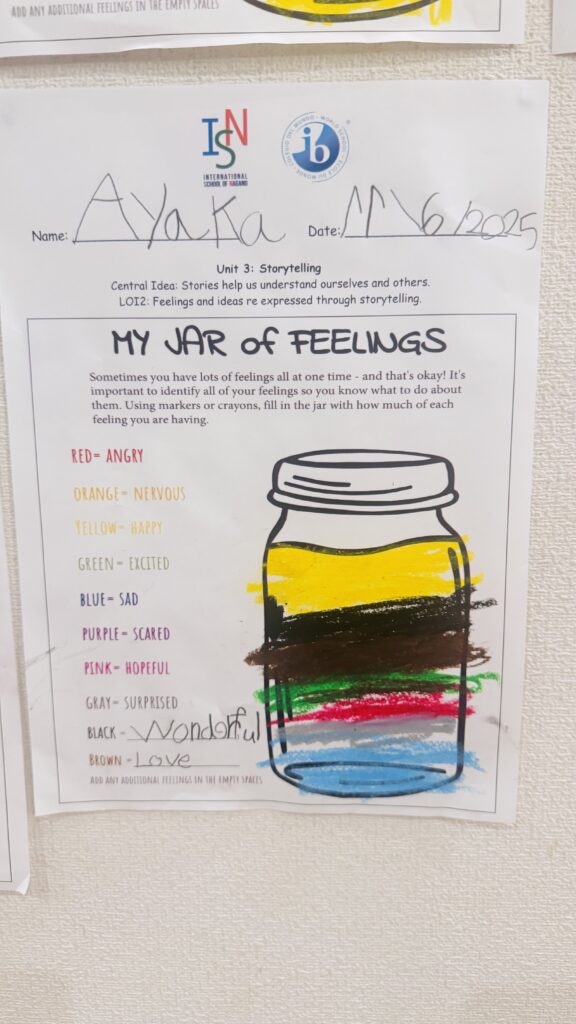 ADD ANY ADDITIONAL FEELINGS IN THE EMPTY SPACES
ISN
INTERNATIONAL
SCHOOL OF NAGANO
ib
WORLD SCHOOL · ÉCOLE DU MONDE · COLEGIO DEL MUNDO ·
®
Name: Ayaka Date: 11\6/2025
Unit 3: Storytelling
Central Idea: Stories help us understand ourselves and others.
LOI2: Feelings and ideas re expressed through storytelling.
MY JAR of FEELINGS
Sometimes you have lots of feelings all at one time - and that's okay! It's
important to identify all of your feelings so you know what to do about
them. Using markers or crayons, fill in the jar with how much of each
feeling you are having.
RED= ANGRY
ORANGE= NERVOUS
YELLOW= HAPPY
GREEN= EXCITED
BLUE= SAD
PURPLE= SCARED
PINK= HOPEFUL
GRAY= SURPRISED
BLACK =
BROWN = Love
ADD ANY ADDITIONAL FEELINGS IN THE EMPTY SPACES